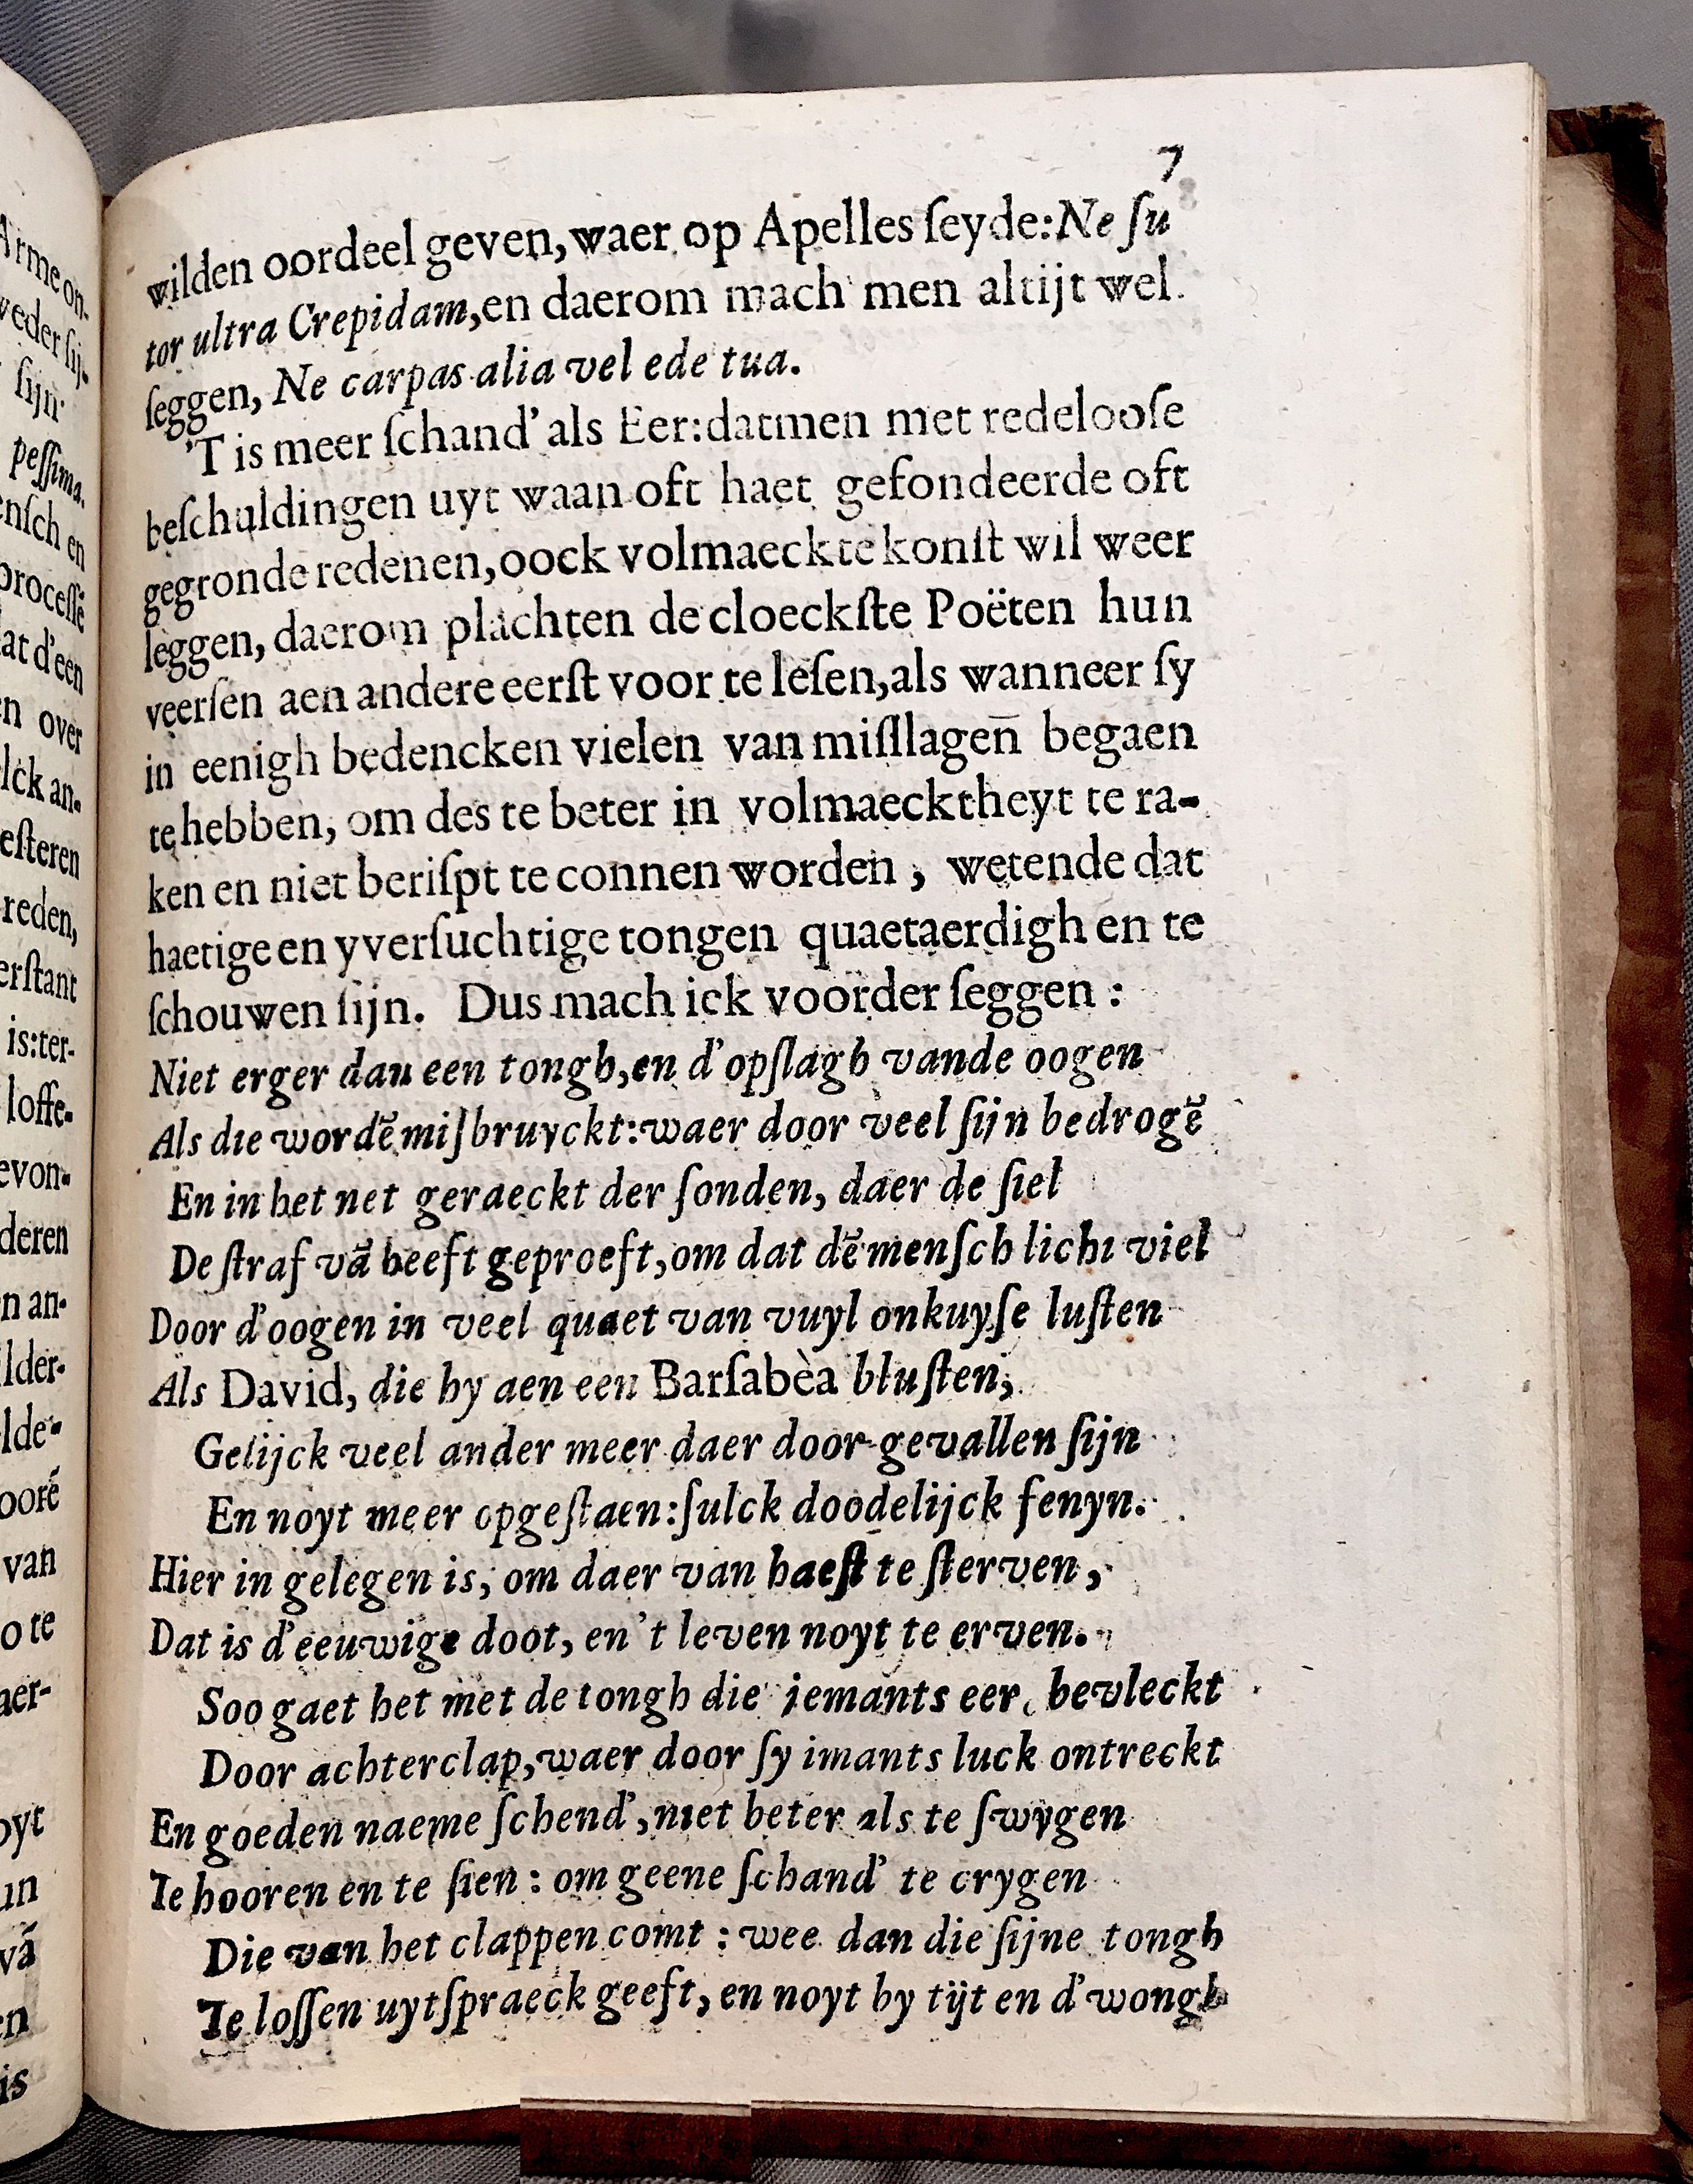 7
wilden oordeel geven, waer op Apelles ſeyde: Ne ſu
tor ultra Crepidam, en daerom mach men altijt wel
ſeggen, Ne carpas alia vel ede tua.
'T is meer ſchand' als Eer: datmen met redelooſe
beſchuldingen uyt waan oft haet gefondeerde oft
gegronde redenen, oock volmaeckte konſt wil weer
leggen, daerom plachten de cloeckſte Poëten hun
veerſen aen andere eerſt voor te leſen, als wanneer ſy
in eenigh bedencken vielen van miſſlagen begaen
te hebben, om des te beter in volmaecktheyt te ra-
ken en niet beriſpt te connen worden, wetende dat
haetige en yverſuchtige tongen quaetaerdigh en te
ſchouwen ſijn. Dus mach ick voorder ſeggen:
Niet erger dan een tongh, en d'opſlagh vande oogen
Als die wordē miſbruyckt: waer door veel ſijn bedrogē
En in het net geraeckt der ſonden, daer de ſiel
De ſtraf vā heeft geproeft, om dat dē menſch licht viel
Door d'oogen in veel quaet van vuyl onkuyſe luſten
Als David, die hy aen een Barſabèa bluſten,
Gelijck veel ander meer daer door gevallen ſijn
En noyt meer opgeſtaen: ſulck doodelijck fenyn.
Hier in gelegen is, om daer van haeſt te ſterven,
Dat is d'eeuwige doot, en 't leven noyt te erven.
Soo gaet het met de tongh die iemants eer, bevleckt
Door achterclap, waer door ſy imants luck ontreckt
En goeden naeme ſchend', niet beter als te ſwygen
Te hooren en te ſien: om geene ſchand' te crygen
Die van het clappen comt: wee dan die ſijne tongh
Te loſſen uytſpraeck geeft, en noyt by tijt en d'wongh